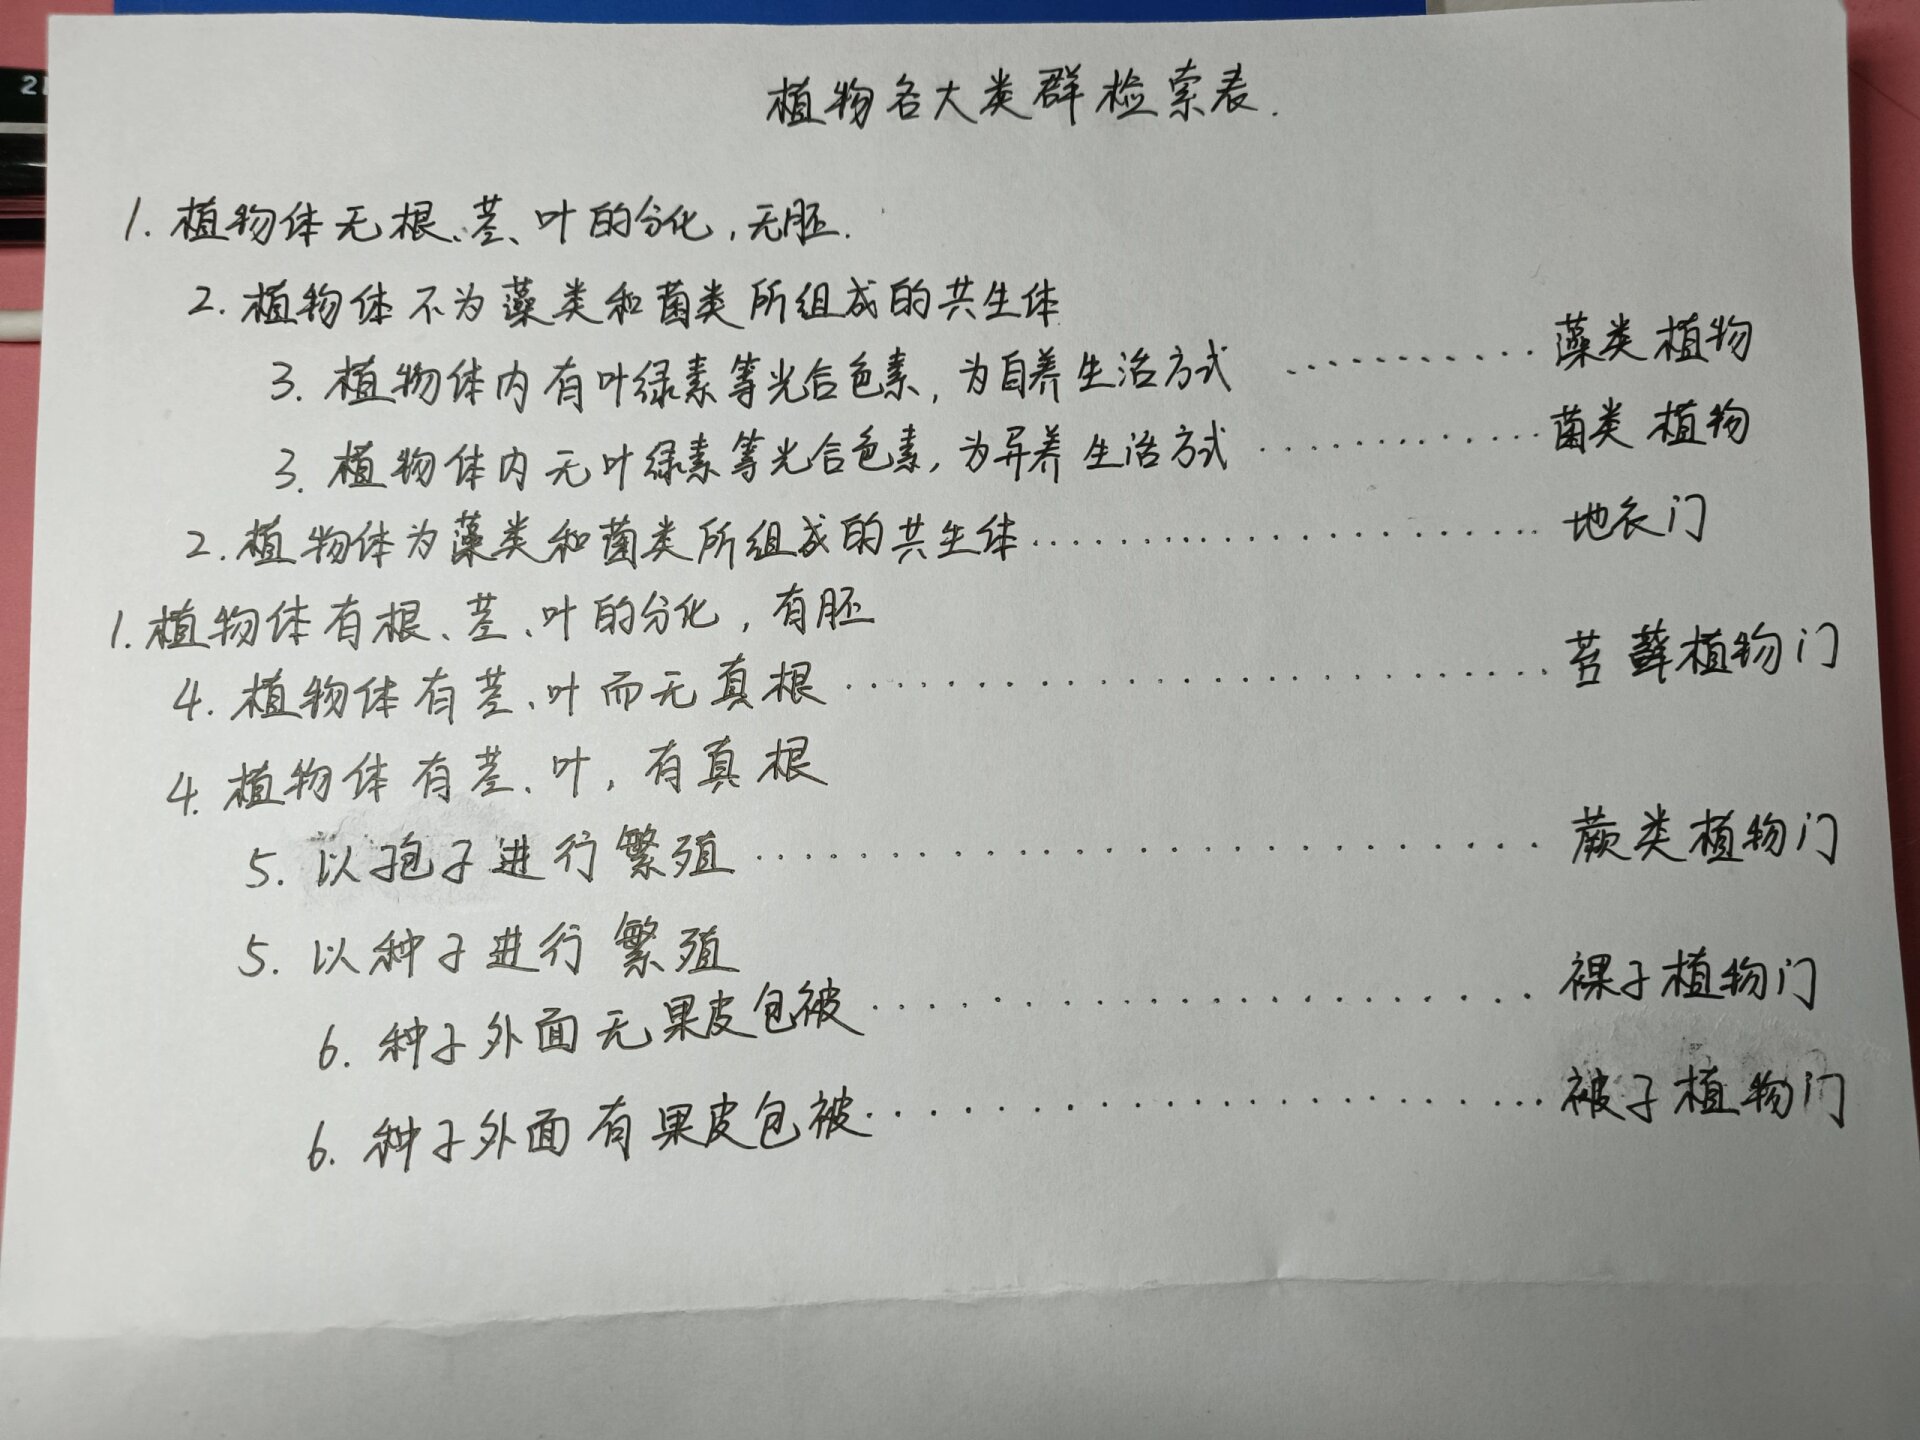 植物各大类群检索表.
1. 植物体无根、茎、叶的分化,无胚.
2. 植物体不为藻类和菌类所组成的共生体
3. 植物体内有叶绿素等光合色素,为自养生活方式 ·········· 藻类植物
3. 植物体内无叶绿素等光合色素,为异养生活方式 ·········· 菌类植物
2. 植物体为藻类和菌类所组成的共生体 ·········· 地衣门
1. 植物体有根、茎、叶的分化,有胚
4. 植物体有茎、叶而无真根 ·········· 苔藓植物门
4. 植物体有茎、叶,有真根
5. 以孢子进行繁殖 ·········· 蕨类植物门
5. 以种子进行繁殖
6. 种子外面无果皮包被 ·········· 裸子植物门
6. 种子外面有果皮包被 ·········· 被子植物门